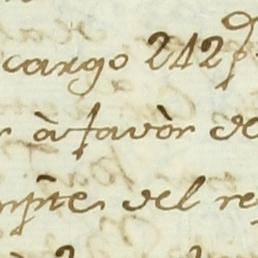 cargo 242 p
à favòr de
del re